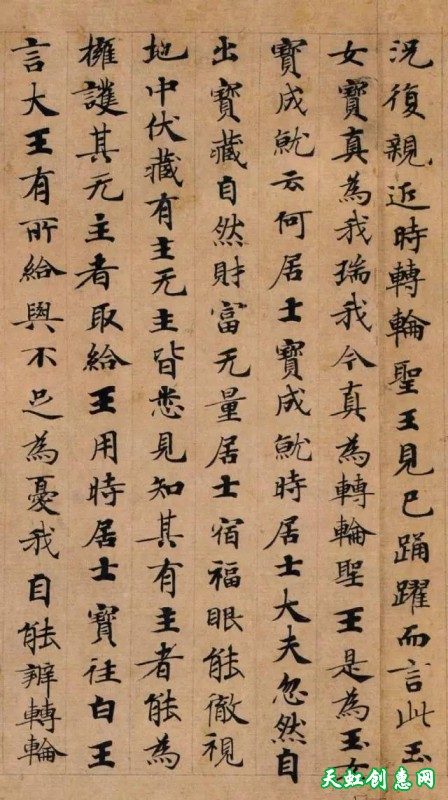 況復親近時轉輪聖王見已踊躍而言此玉
女寶真為我瑞我今真為轉輪聖王是為玉女
寶成就云何居士寶成就時居士大夫忽然自
出寶藏自然財富无量居士宿福眼能徹視
地中伏藏有主无主皆悉見知其有主者能為
擁護其无主者取給王用時居士寶往白王
言大王有所給與不足為憂我自能辦轉輪
天虹创惠网